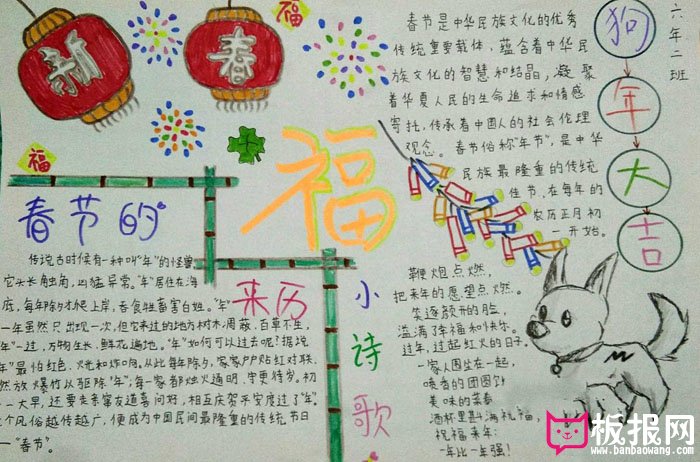 新
春
福
福
春节是中华民族文化的优秀
传统重要载体，蕴含着中华民
族文化的智慧和结晶，凝聚
着华夏人民的生命追求和情感
寄托，传承着中国人的社会伦理
观念。春节俗称"年节"，是中华
民族最隆重的传统
佳节。在每年的
农历正月初
一开始。
狗
年
大
吉
六年二班
福
春节的
来历
传说古时候有一种叫"年"的怪兽
它头长角，凶猛异常。"年"居住在海
底，每年除夕才爬上岸，吞食牲畜害百姓。"年"
一年虽然只出现一次，但它来过的地方树木凋蔽，百草不生，
年"一过，万物生长，鲜花遍地。"年"如何可以过去呢？据说
年"最怕红色、火光和炸响。从此每年除夕，家家户户贴红对联
燃放爆竹以驱除"年"，每一家都烛火通明，守更待岁。初
一大早，还要走亲窜友道喜问好，相互庆贺平安度过了"年"。
个风俗越传越广，便成为中国民间最隆重的传统节日
—"春节"。
小诗歌
鞭炮点燃，
把来年的愿望点燃。
笑逐颜开的脸，
溢满了幸福和快乐。
过年，过起红火的日子。
一家人围坐在一起，
喷香的团圆饭
美味的菜肴
酒杯里斟满祝福，
祝福来年：
一年比一年强！
板报网
www.banbaowang.com